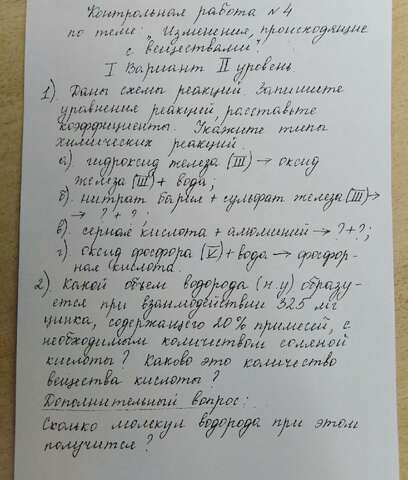 Контрольная работа №4
по теме: "Изменения, происходящие
с веществами".
I Вариант II уровень
1). Даны схемы реакций. Запишите
уравнения реакций, расставьте
коэффициенты. Укажите типы
химических реакций.
а) гидроксид железа (III) → оксид
железа (III) + вода;
б). нитрат бария + сульфат железа (III) →
→ ? + ? ;
в). серная кислота + алюминий → ? + ?;
г). оксид фосфора (V) + вода → фосфор-
ная кислота.
2). Какой объем водорода (н.у) образу-
ется при взаимодействии 325 мг
цинка, содержащего 20% примесей, с
необходимым количеством соляной
кислоты? Каково это количество
вещества кислоты?
Дополнительный вопрос:
Сколько молекул водорода при этом
получится?